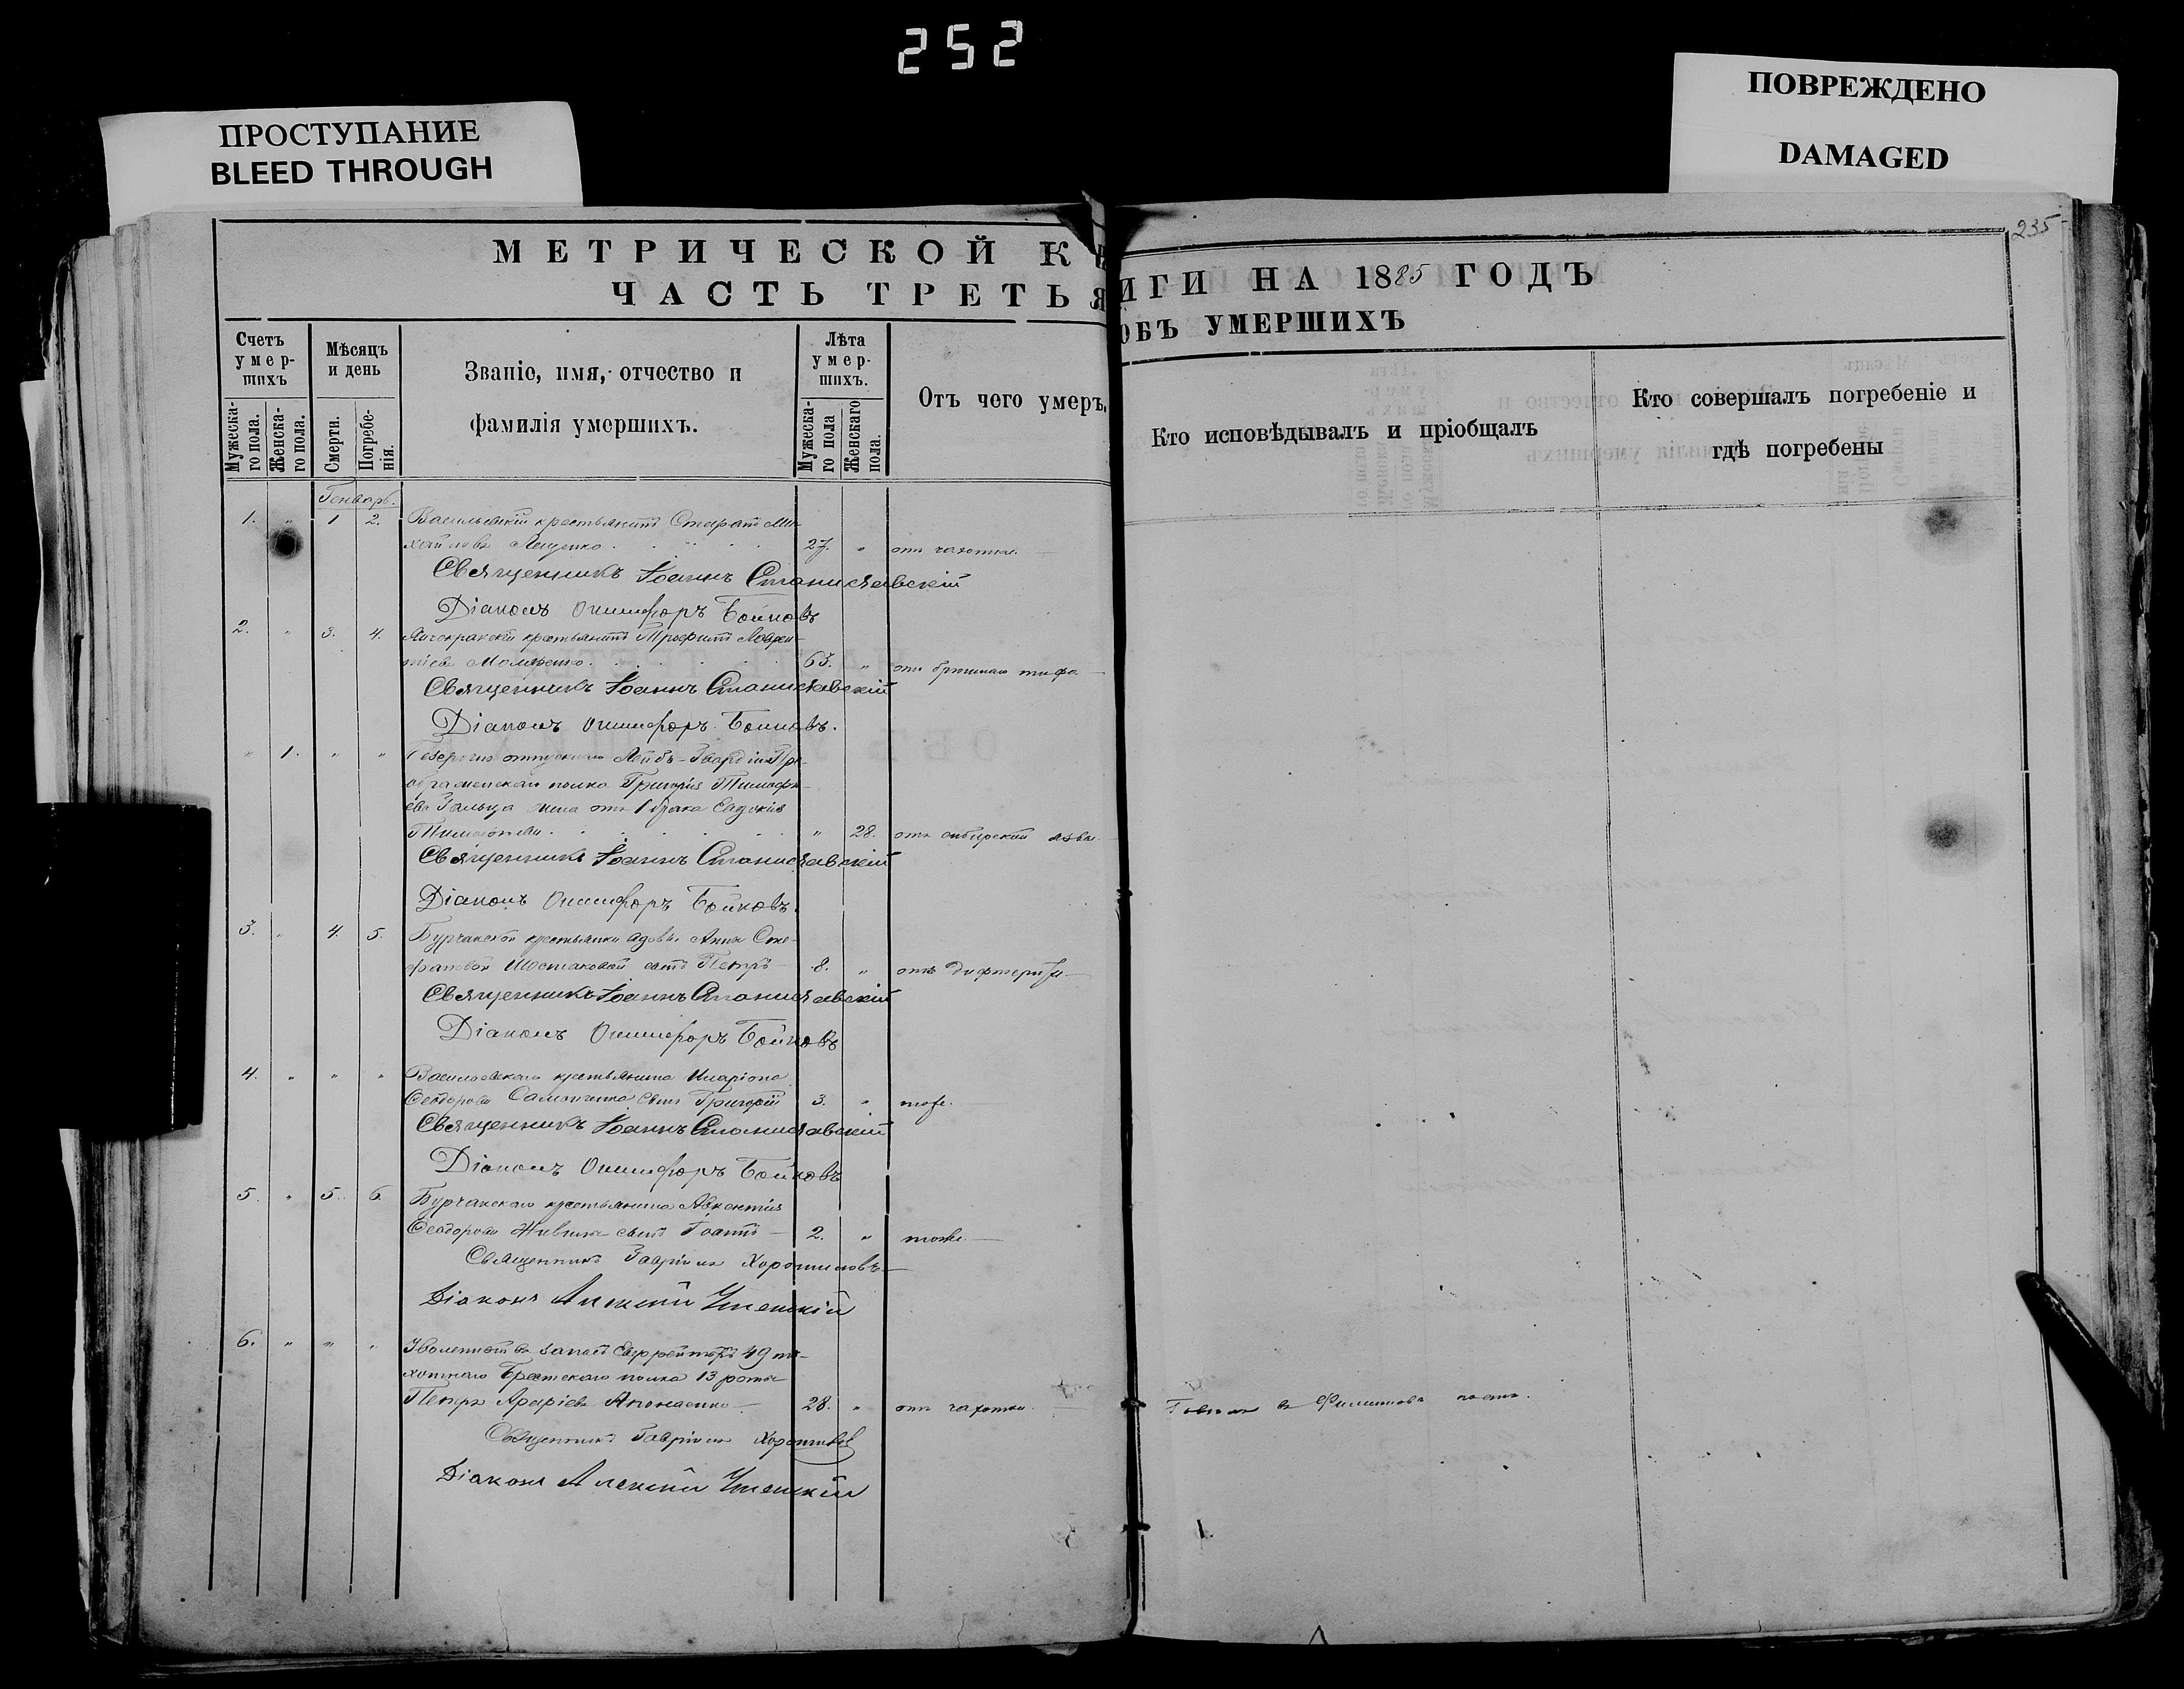 252
ПРОСТУПАНИЕ
BLEED THROUGH
ПОВРЕЖДЕНО
DAMAGED
235
МЕТРИЧЕСКОЙ КНИГИ НА 1885 ГОДЪ
ЧАСТЬ ТРЕТЬЯ ОБЪ УМЕРШИХЪ
Счетъ умер-
шихъ
Мужеска-
го пола.
Женска-
го пола.
Мѣсяцъ
и день
Смерти.
Погребе-
нія.
Званіе, имя, отчество и
фамилія умершихъ.
Лѣта
умер-
шихъ.
Мужеска-
го пола
Женскаго
пола.
Отъ чего умеръ.
Кто исповѣдывалъ и пріобщалъ
Кто совершалъ погребеніе и
гдѣ погребены
Генварь.
1. " 1 2. Васильевскій крестьянинъ Ми-
хайловъ 27. " отъ чахотки.
Священникъ Іоаннъ Станиславскій
Діаконъ Онисифоръ Бойковъ
2. " 3. 4. крестьянинъ Трофимъ Лаврен-
тіевъ 63. " отъ брюшнаго тифа
Священникъ Іоаннъ Станиславскій
Діаконъ Онисифоръ Бойковъ.
" 1. " " отпускнаго Лейбъ-Гвардіи Пре-
ображенскаго полка Григорія Тимофе-
ева жена отъ 1 брака Евдокія
Тимофеева " 28. отъ сибирской язвы
Священникъ Іоаннъ Станиславскій
Діаконъ Онисифоръ Бойковъ.
3. " 4. 5. Бурчакской крестьянки вдовы Анны Сте-
фановой Шостаковой сынъ Петръ 8. " отъ дифтерита
Священникъ Іоаннъ Станиславскій
Діаконъ Онисифоръ Бойковъ
4. " " " Васильевскаго крестьянина Иларіона
Феодорова сынъ Григорій 3. " тоже.
Священникъ Іоаннъ Станиславскій
Діаконъ Онисифоръ Бойковъ
5. " 5. 6. Бурчакскаго крестьянина
Феодорова сынъ Іоаннъ 2. " тоже.
Священникъ Гавріилъ Хорошиловъ
Діаконъ Алексій
6. " " " Уволенный въ запасъ Ефрейторъ 49 пѣ-
хотнаго Брестскаго полка 13 роты
Петръ 28. " отъ чахотки.
Говѣлъ въ Филиповъ постъ.
Священникъ Гавріилъ Хорошиловъ
Діаконъ Алексій